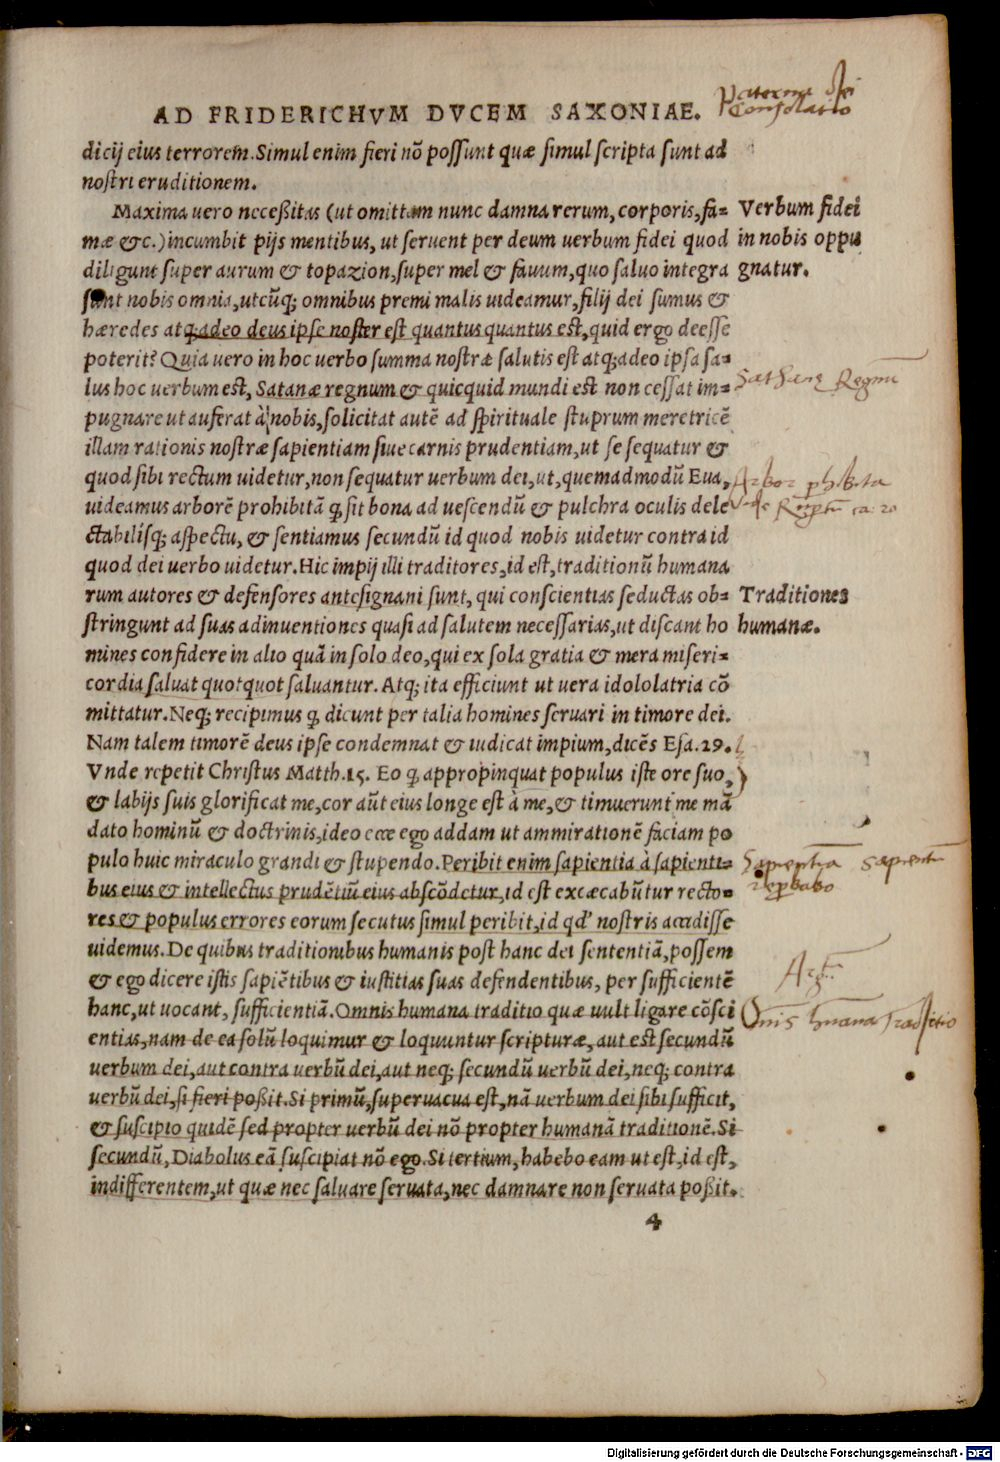 AD FRIDERICHVM DVCEM SAXONIAE.
Paterna Dei
Consolatio
dicij eius terrorem. Simul enim fieri nõ possunt quæ simul scripta sunt ad
nostri eruditionem.
Maxima uero neceßitas (ut omittam nunc damna rerum, corporis, fa=
mæ &c.) incumbit pijs mentibus, ut seruent per deum uerbum fidei quod
diligunt super aurum & topazion, super mel & fauum, quo saluo integra
sunt nobis omnia, utcũq; omnibus premi malis uideamur, filij dei sumus &
hæredes atq; adeo deus ipse noster est quantus quantus est, quid ergo deesse
poterit? Quia uero in hoc uerbo summa nostræ salutis est atq; adeo ipsa sa=
lus hoc uerbum est, Satanæ regnum & quicquid mundi est non cessat im=
pugnare ut auferat à nobis, solicitat autẽ ad spirituale stuprum meretricẽ
illam rationis nostræ sapientiam siue carnis prudentiam, ut se sequatur &
quod sibi rectum uidetur, non sequatur uerbum dei, ut, quemadmodũ Eua,
uideamus arborẽ prohibitã q̃ sit bona ad uescendũ & pulchra oculis dele
ctabilisq; aspectu, & sentiamus secundũ id quod nobis uidetur contra id
quod dei uerbo uidetur. Hic impij illi traditores, id est, traditionũ humana
rum autores & defensores antesignani sunt, qui conscientias seductas ob=
stringunt ad suas adinuentiones quasi ad salutem necessarias, ut discant ho
mines confidere in alio quã in solo deo, qui ex sola gratia & mera miseri=
cordia saluat quotquot saluantur. Atq; ita efficiunt ut uera idololatria cõ
mittatur. Neq; recipimus q̃ dicunt per talia homines seruari in timore dei.
Nam talem timorẽ deus ipse condemnat & iudicat impium, dicẽs Esa. 29.
Vnde repetit Christus Matth. 15. Eo q̃ appropinquat populus iste ore suo,
& labijs suis glorificat me, cor aũt eius longe est à me, & timuerunt me mã
dato hominũ & doctrinis, ideo ecce ego addam ut ammirationẽ faciam po
pulo huic miraculo grandi & stupendo. Peribit enim sapientia à sapienti=
bus eius & intellectus prudẽtiũ eius abscõdetur, id est excæcabũtur recto=
res & populus errores eorum secutus simul peribit, id qd' nostris accidisse
uidemus. De quibus traditionibus humanis post hanc dei sententiã, possem
& ego dicere istis sapiẽtibus & iustitias suas defendentibus, per sufficientẽ
hanc, ut uocant, sufficientiã. Omnis humana traditio quæ uult ligare cõsci
entias, nam de ea solũ loquimur & loquuntur scripturæ, aut est secundũ
uerbum dei, aut contra uerbũ dei, aut neq; secundũ uerbũ dei, neq; contra
uerbũ dei, si fieri poßit. Si primũ, superuacua est, nã uerbum dei sibi sufficit,
& suscipio quidẽ sed propter uerbũ dei nõ propter humanã traditionẽ. Si
secundũ, Diabolus eã suscipiat nõ ego. Si tertium, habebo eam ut est, id est,
indifferentem, ut quæ nec saluare seruata, nec damnare non seruata poßit.
4
Verbum fidei
in nobis oppu
gnatur.
Sathanę Regnũ
Arbor phibita
ca: 20
Traditiones
humanæ.
Sapientia Sapientũ
Omīs humana Traditio
Digitalisierung gefördert durch die Deutsche Forschungsgemeinschaft - DFG